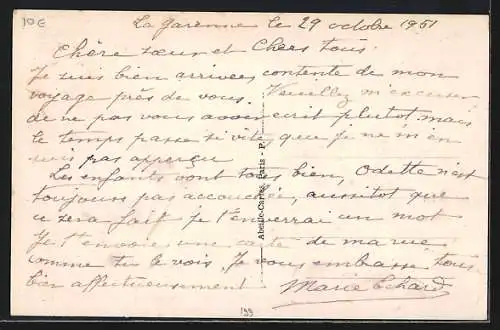 10€
La Garenne le 29 octobre 1951
Chère sœur et Chers tous.
Je suis bien arrivée, contente de mon
voyage près de vous. Veuillez m'excuser
de ne pas vous avoir écrit plutôt mais
le temps passe si vite, que je ne m'en
suis pas aperçu
Les enfants vont tous bien, Odette n'est
toujours pas accouchée, aussitot que
ce sera fait je t'enverrai un mot
Je t'envoie une carte de ma rue
comme tu le vois, Je vous embrasse tous
bien affectueusement Marie Echard
Abeille-Cartes, Paris - P.
199